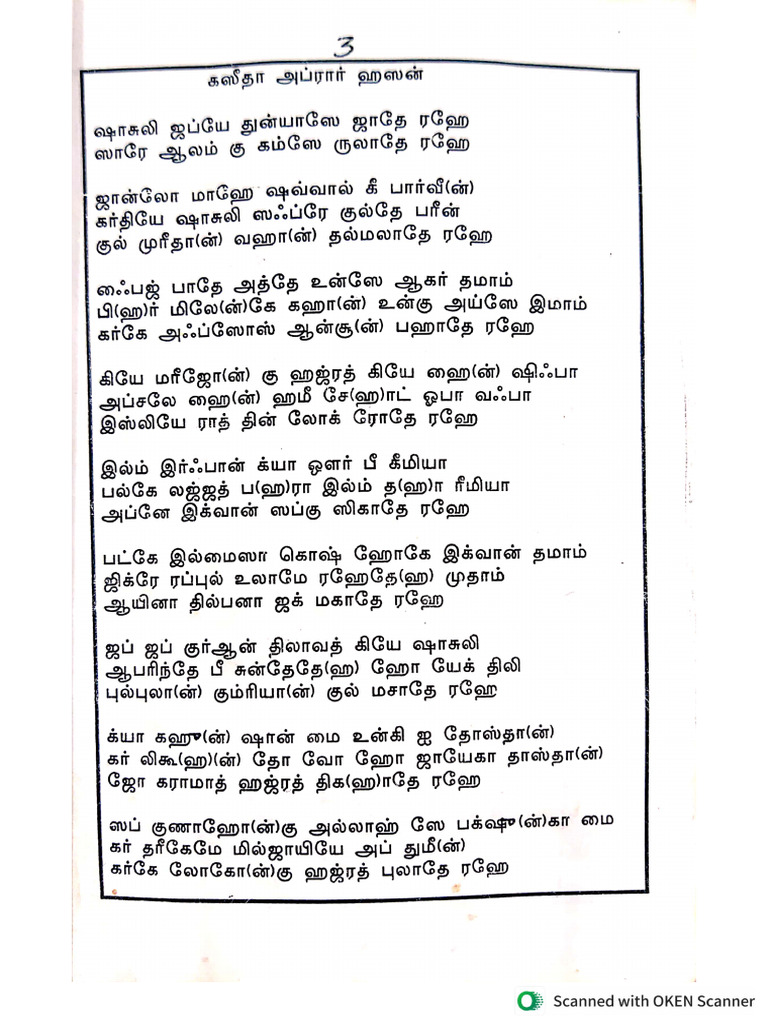 3
கஸீதா அப்ரார் ஹஸன்
ஷாசுலி ஜப்யே துன்யாஸே ஜாதே ரஹே
ஸாரே ஆலம் கு கம்ஸே ருலாதே ரஹே
ஜான்லோ மாஹே ஷவ்வால் கீ பார்வீ(ன்)
கர்தியே ஷாசுலி ஸஃப்ரே குல்தே பரீன்
குல் முரீதா(ன்) வஹா(ன்) தல்மலாதே ரஹே
ஃபைஜ் பாதே அத்தே உன்ஸே ஆகர் தமாம்
பி(ஹ)ர் மிலே(ன்)கே கஹா(ன்) உன்கு அய்ஸே இமாம்
கர்கே அஃப்ஸோஸ் ஆன்சூ(ன்) பஹாதே ரஹே
கியே மரீஜோ(ன்) கு ஹஜ்ரத் கியே ஹை(ன்) ஷிஃபா
அப்சலே ஹை(ன்) ஹமீ சே(ஹ)ாட் ஓபா வஃபா
இஸ்லியே ராத் தின் லோக் ரோதே ரஹே
இல்ம் இர்ஃபான் க்யா ஔர் பீ கீமியா
பல்கே லஜ்ஜத் ப(ஹ)ரா இல்ம் த(ஹ)ா ரீமியா
அப்னே இக்வான் ஸப்கு ஸிகாதே ரஹே
பட்கே இல்மைஸா கொஷ் ஹோகே இக்வான் தமாம்
ஜிக்ரே ரப்புல் உலாமே ரஹேதே(ஹ) முதாம்
ஆயினா தில்பனா ஜக் மகாதே ரஹே
ஜப் ஜப் குர்ஆன் திலாவத் கியே ஷாசுலி
ஆபரிந்தே பீ சுன்தேதே(ஹ) ஹோ யேக் திலி
புல்புலா(ன்) கும்ரியா(ன்) குல் மசாதே ரஹே
க்யா கஹு(ன்) ஷான் மை உன்கி ஐ தோஸ்தா(ன்)
கர் லிகூ(ஹ)(ன்) தோ வோ ஹோ ஜாயேகா தாஸ்தா(ன்)
ஜோ கராமாத் ஹஜ்ரத் திக(ஹ)ாதே ரஹே
ஸப் குணாஹோ(ன்)கு அல்லாஹ் ஸே பக்ஷு(ன்)கா மை
கர் தரீகேமே மில்ஜாயியே அப் துமீ(ன்)
கர்கே லோகோ(ன்)கு ஹஜ்ரத் புலாதே ரஹே
Scanned with OKEN Scanner